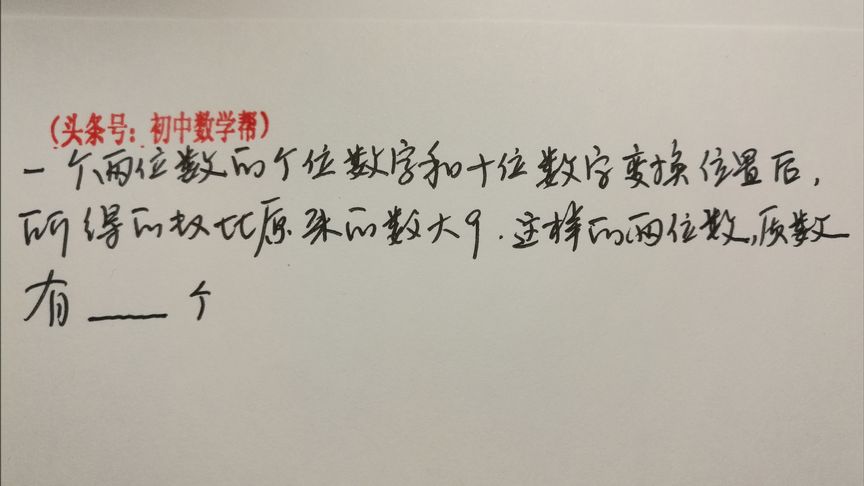 (头条号：初中数学帮)
一个两位数的个位数字和十位数字变换位置后，
所得的数比原来的数大9．这样的两位数,质数
有____个